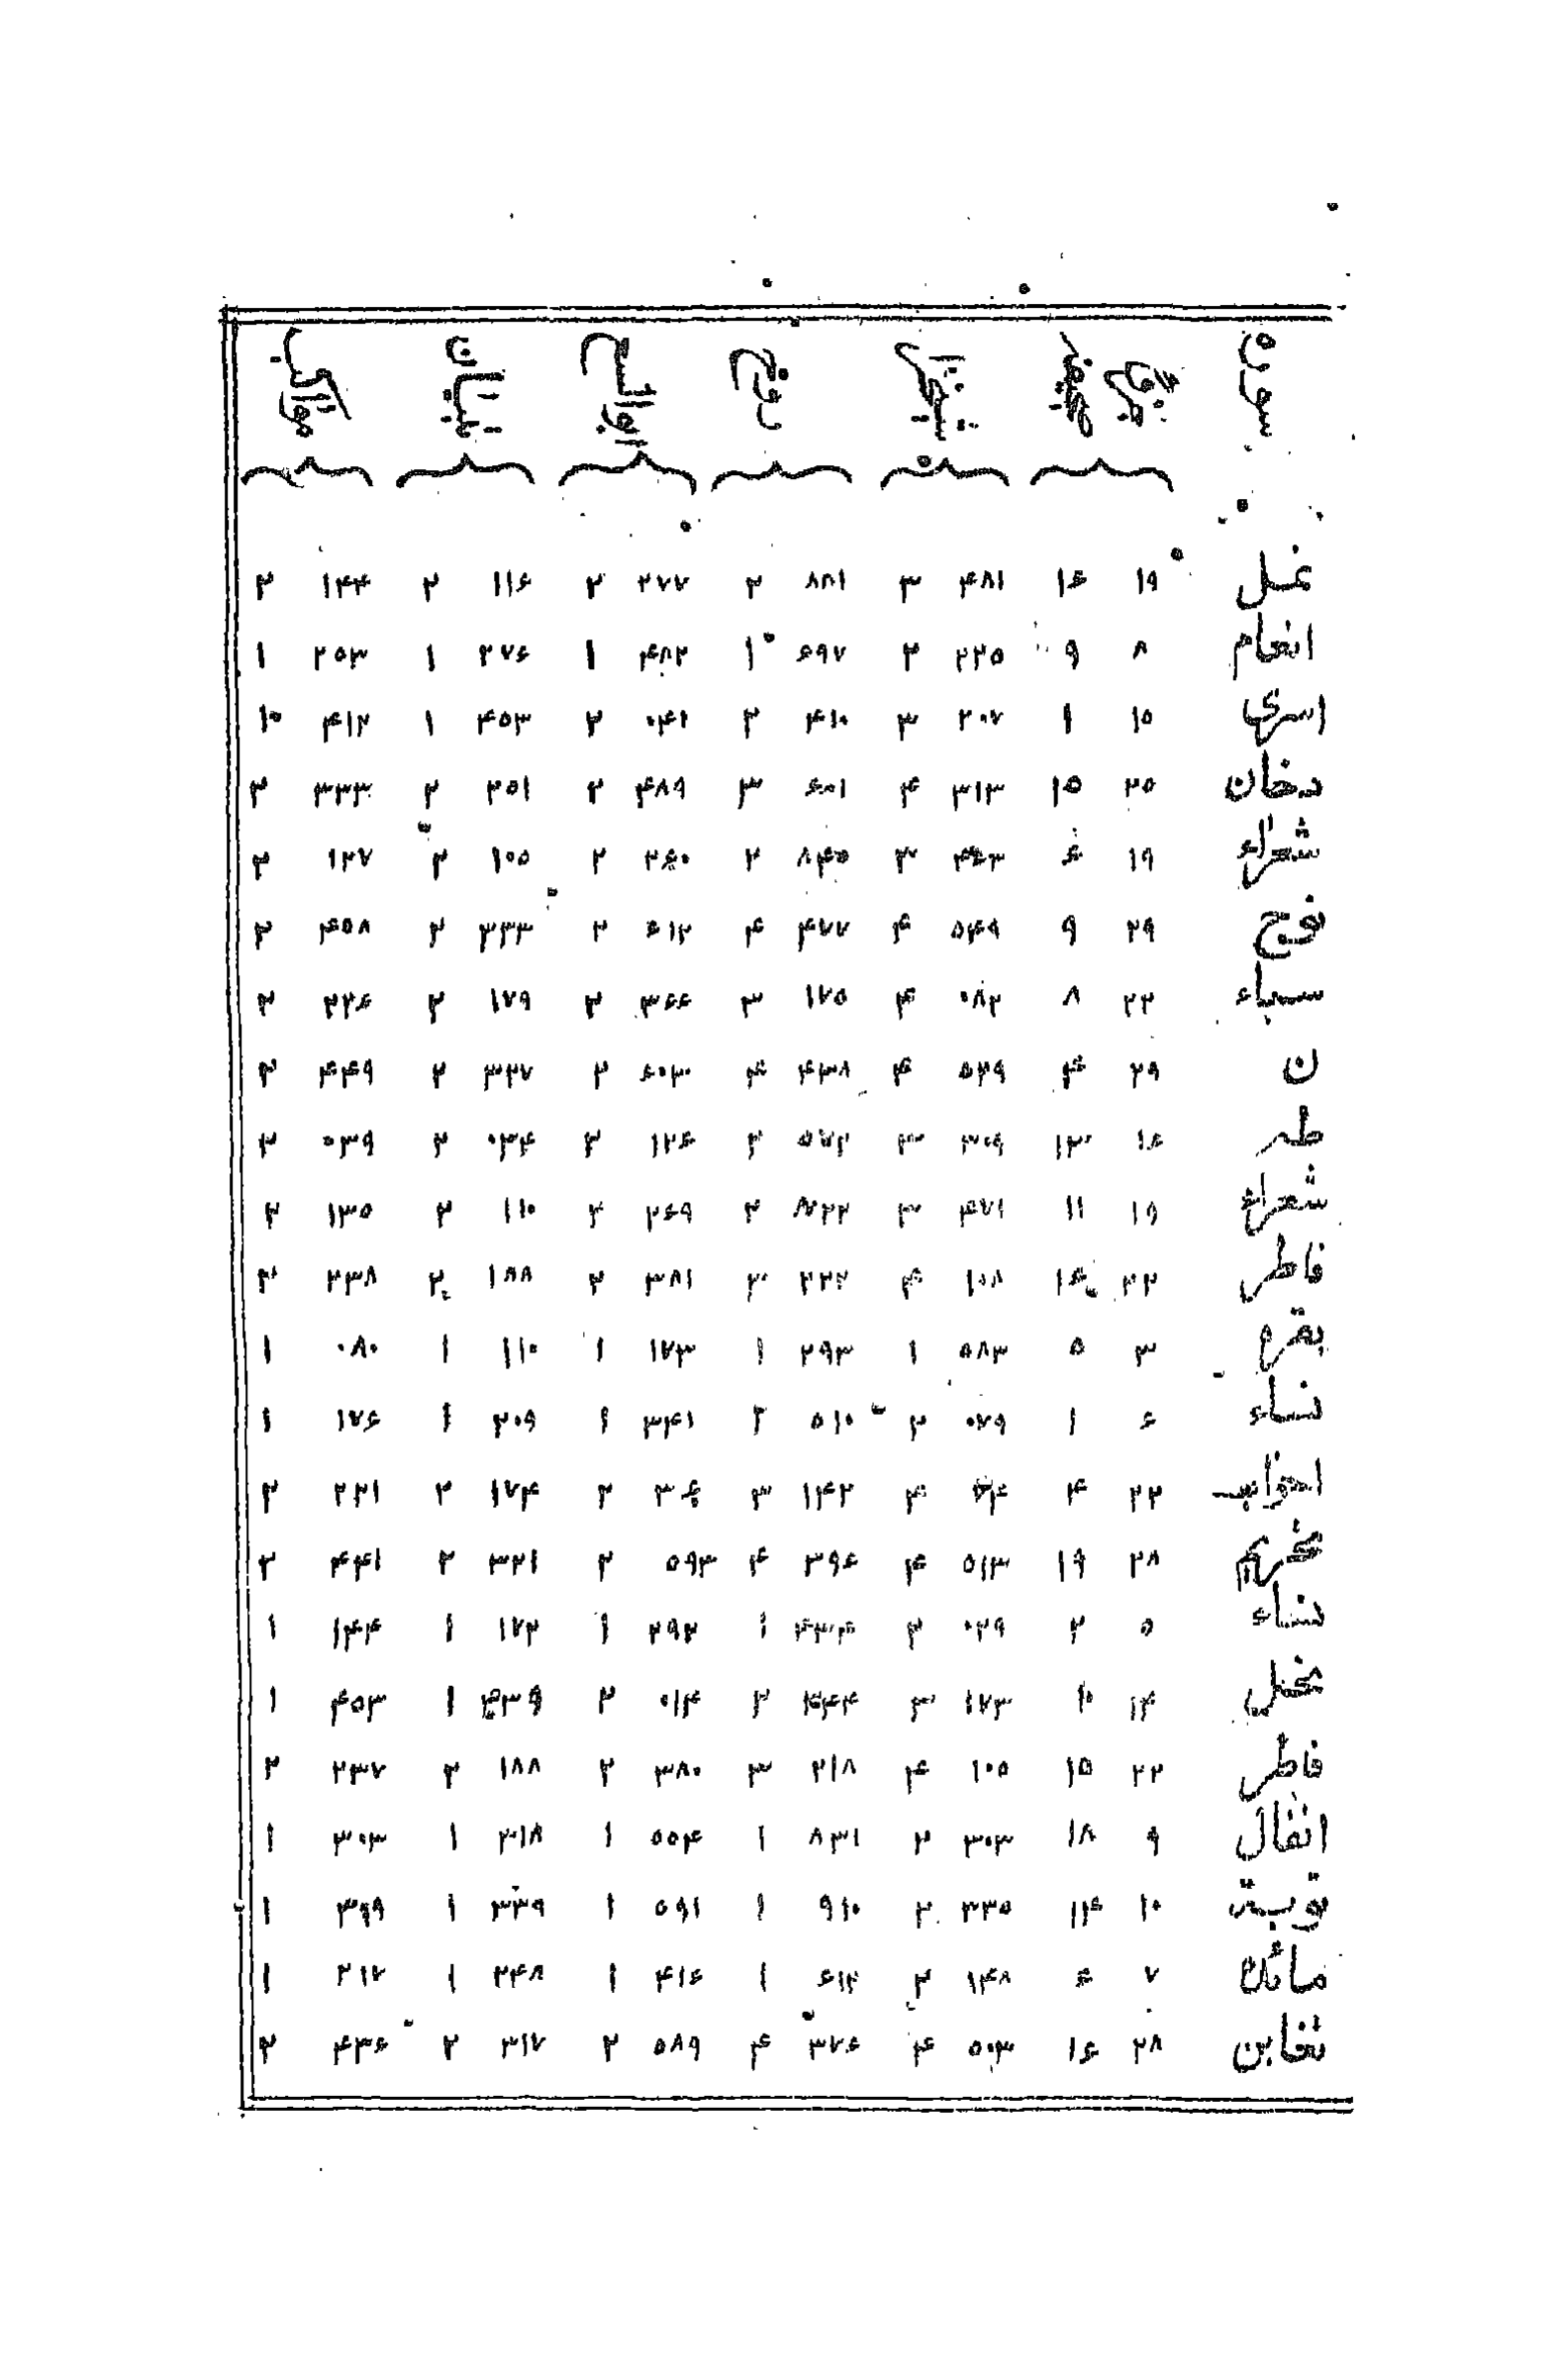 سوره
نمل ۱۹ ۱۶ ۴۸۱ ۳ ۸۸۱ ۲ ۲۷۷ ۲ ۱۱۶ ۲ ۱۴۴ ۲
انعام ۸ ۹ ۲۲۵ ۲ ۶۹۷ ۱ ۴۸۲ ۱ ۲۷۶ ۱ ۲۵۳ ۱
اسری ۱۵ ۱ ۲۰۷ ۳ ۴۱۰ ۲ ۰۴۱ ۲ ۴۵۳ ۱ ۴۱۲ ۱۰
دخان ۲۵ ۱۵ ۳۱۳ ۴ ۶۰۱ ۳ ۴۸۹ ۲ ۲۵۱ ۲ ۳۳۳ ۲
شعراء ۱۹ ۶ ۴۶۳ ۳ ۸۴۵ ۲ ۲۶۰ ۲ ۱۰۵ ۲ ۱۲۷ ۲
نوح ۲۹ ۹ ۵۴۹ ۴ ۴۷۷ ۴ ۶۱۲ ۲ ۳۳۳ ۲ ۴۵۸ ۲
سباء ۲۲ ۸ ۰۸۲ ۴ ۱۷۵ ۳ ۳۶۶ ۲ ۱۷۹ ۲ ۲۲۶ ۲
ن ۲۹ ۴ ۵۲۹ ۴ ۴۳۸ ۴ ۶۰۳ ۲ ۳۲۷ ۲ ۴۴۹ ۲
طه ۱۶ ۱۳ ۳۰۹ ۳ ۵۷۲ ۲ ۱۲۶ ۲ ۰۳۴ ۲ ۰۳۹ ۲
شعراء ۱۹ ۱۱ ۴۷۱ ۳ ۲ ۲۶۹ ۲ ۱۱۰ ۲ ۱۳۵ ۲
فاطر ۲۲ ۱۶ ۱۰۸ ۴ ۲۲۲ ۳ ۳۸۱ ۲ ۱۸۸ ۲ ۲۳۸ ۲
بقره ۳ ۵ ۵۸۳ ۱ ۲۹۳ ۱ ۱۷۳ ۱ ۱۱۰ ۱ ۰۸۰ ۱
نساء ۶ ۱ ۰۷۹ ۲ ۵۱۰ ۲ ۳۴۱ ۱ ۲۰۹ ۱ ۱۷۶ ۱
احزاب ۲۲ ۴ ۴ ۱۴۲ ۳ ۲ ۱۷۴ ۲ ۲۲۱ ۲
تحریم ۲۸ ۱۹ ۵۱۳ ۴ ۳۹۶ ۴ ۵۹۳ ۲ ۳۲۱ ۲ ۴۴۱ ۲
نساء ۵ ۲ ۰۲۹ ۲ ۴۳۴ ۱ ۲۹۲ ۱ ۱۷۲ ۱ ۱۴۴ ۱
نحل ۱۴ ۱۰ ۱۷۳ ۳ ۲ ۰۱۴ ۲ ۱ ۴۵۳ ۱
فاطر ۲۲ ۱۵ ۱۰۵ ۴ ۲۱۸ ۳ ۳۸۰ ۲ ۱۸۸ ۲ ۲۳۷ ۲
انفال ۹ ۱۸ ۳۰۳ ۲ ۸۳۱ ۱ ۵۵۴ ۱ ۳۱۸ ۱ ۳۰۳ ۱
توبة ۱۰ ۱۴ ۳۳۵ ۲ ۹۱۰ ۱ ۵۹۱ ۱ ۳۳۹ ۱ ۳۹۹ ۱
مائده ۷ ۶ ۱۴۸ ۲ ۶۱۲ ۱ ۴۱۶ ۱ ۲۴۸ ۱ ۲۱۷ ۱
تغابن ۲۸ ۱۶ ۵۰۳ ۴ ۳۷۶ ۴ ۵۸۹ ۲ ۳۱۷ ۲ ۴۳۶ ۲